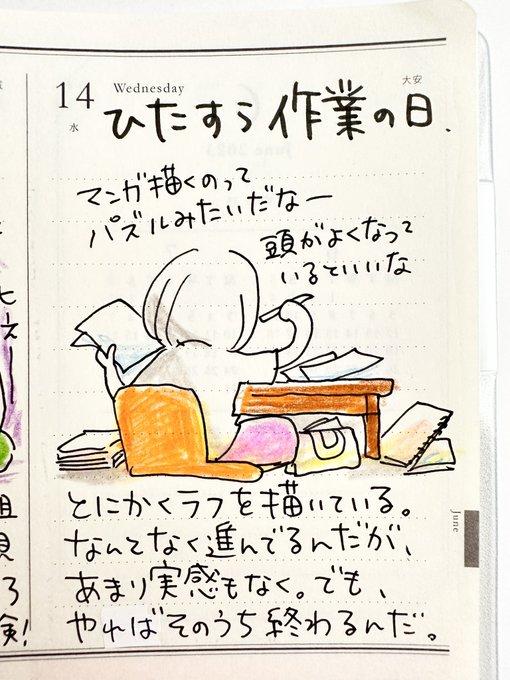 14
Wednesday
水
大安
ひたすら作業の日.
マンガ描くのって
パズルみたいだなー
頭がよくなって
いるといいな
とにかくラフを描いている。
なんてなく進んでるんだが、
あまり実感もなく。でも、
やればそのうち終わるんだ。
June
ヒ
ス
見
ろ
険!